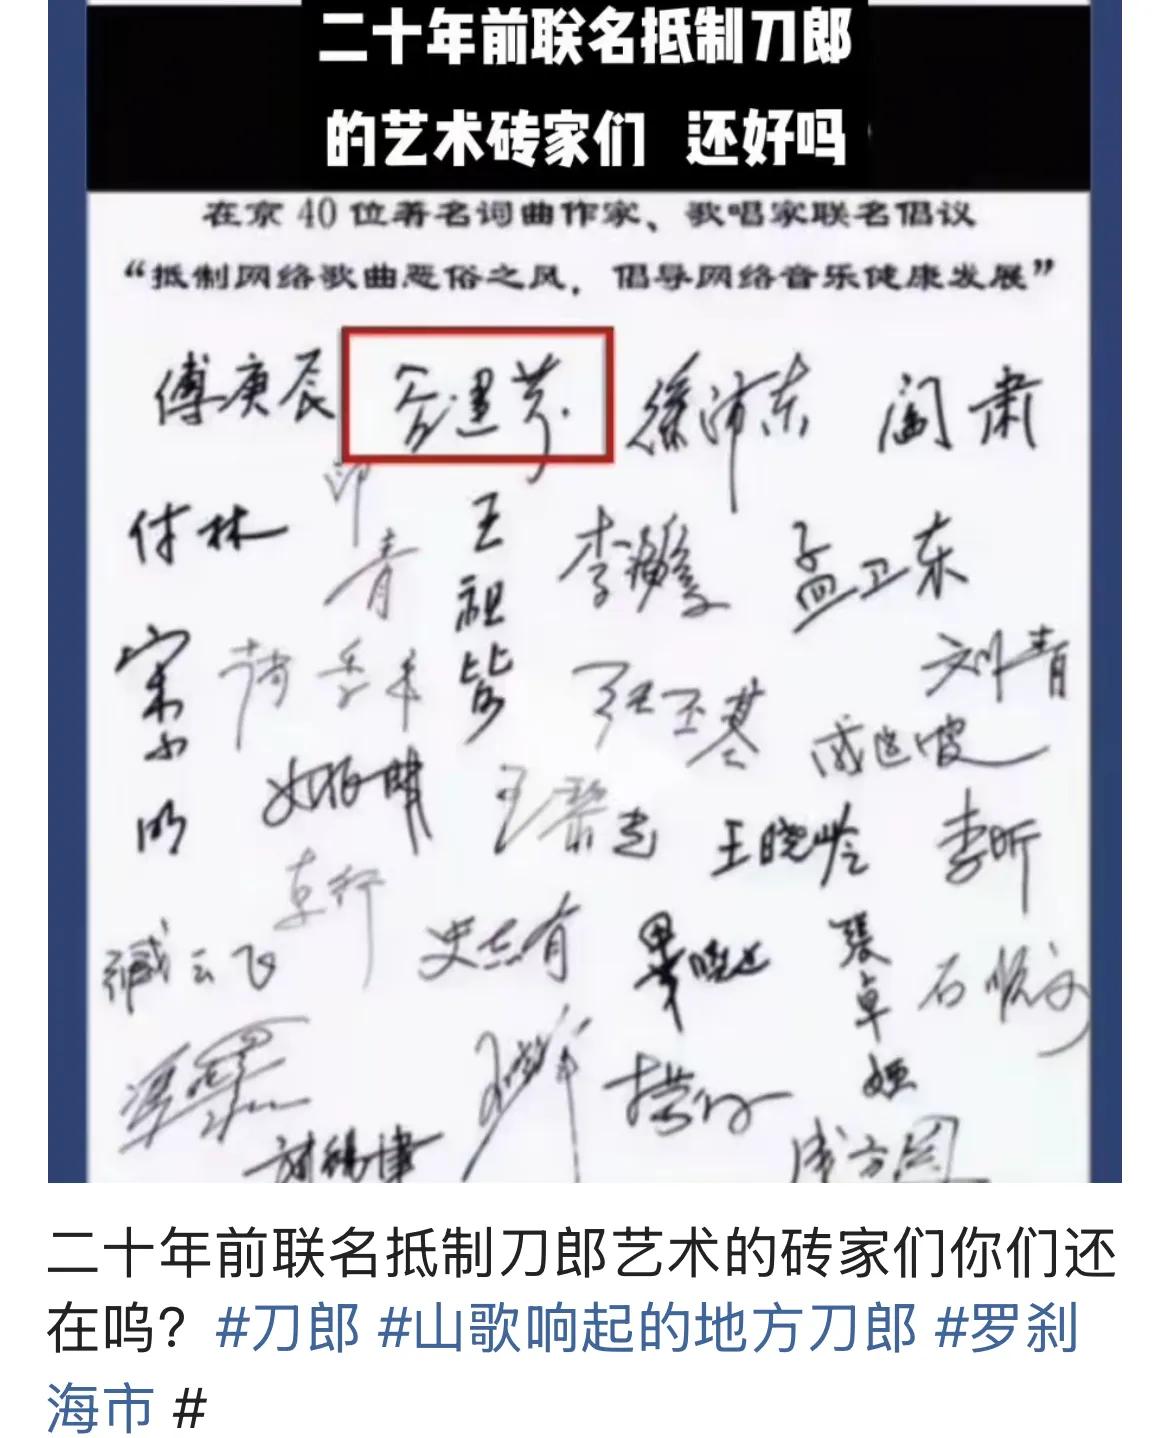 二十年前联名抵制刀郎
的艺术砖家们 还好吗
在京40位著名词曲作家、歌唱家联名倡议
“抵制网络歌曲恶俗之风，倡导网络音乐健康发展”
傅庚辰 谷建芬 徐沛东 阎肃
付林 印青 王祖皆 李海鹰 孟卫东
宋小明 张丕基 戚建波 刘青
王黎光 王晓岭 李昕
臧云飞 史志有 张卓娅 石顺义
成方圆
二十年前联名抵制刀郎艺术的砖家们你们还
在呜？#刀郎 #山歌响起的地方刀郎 #罗刹
海市 #